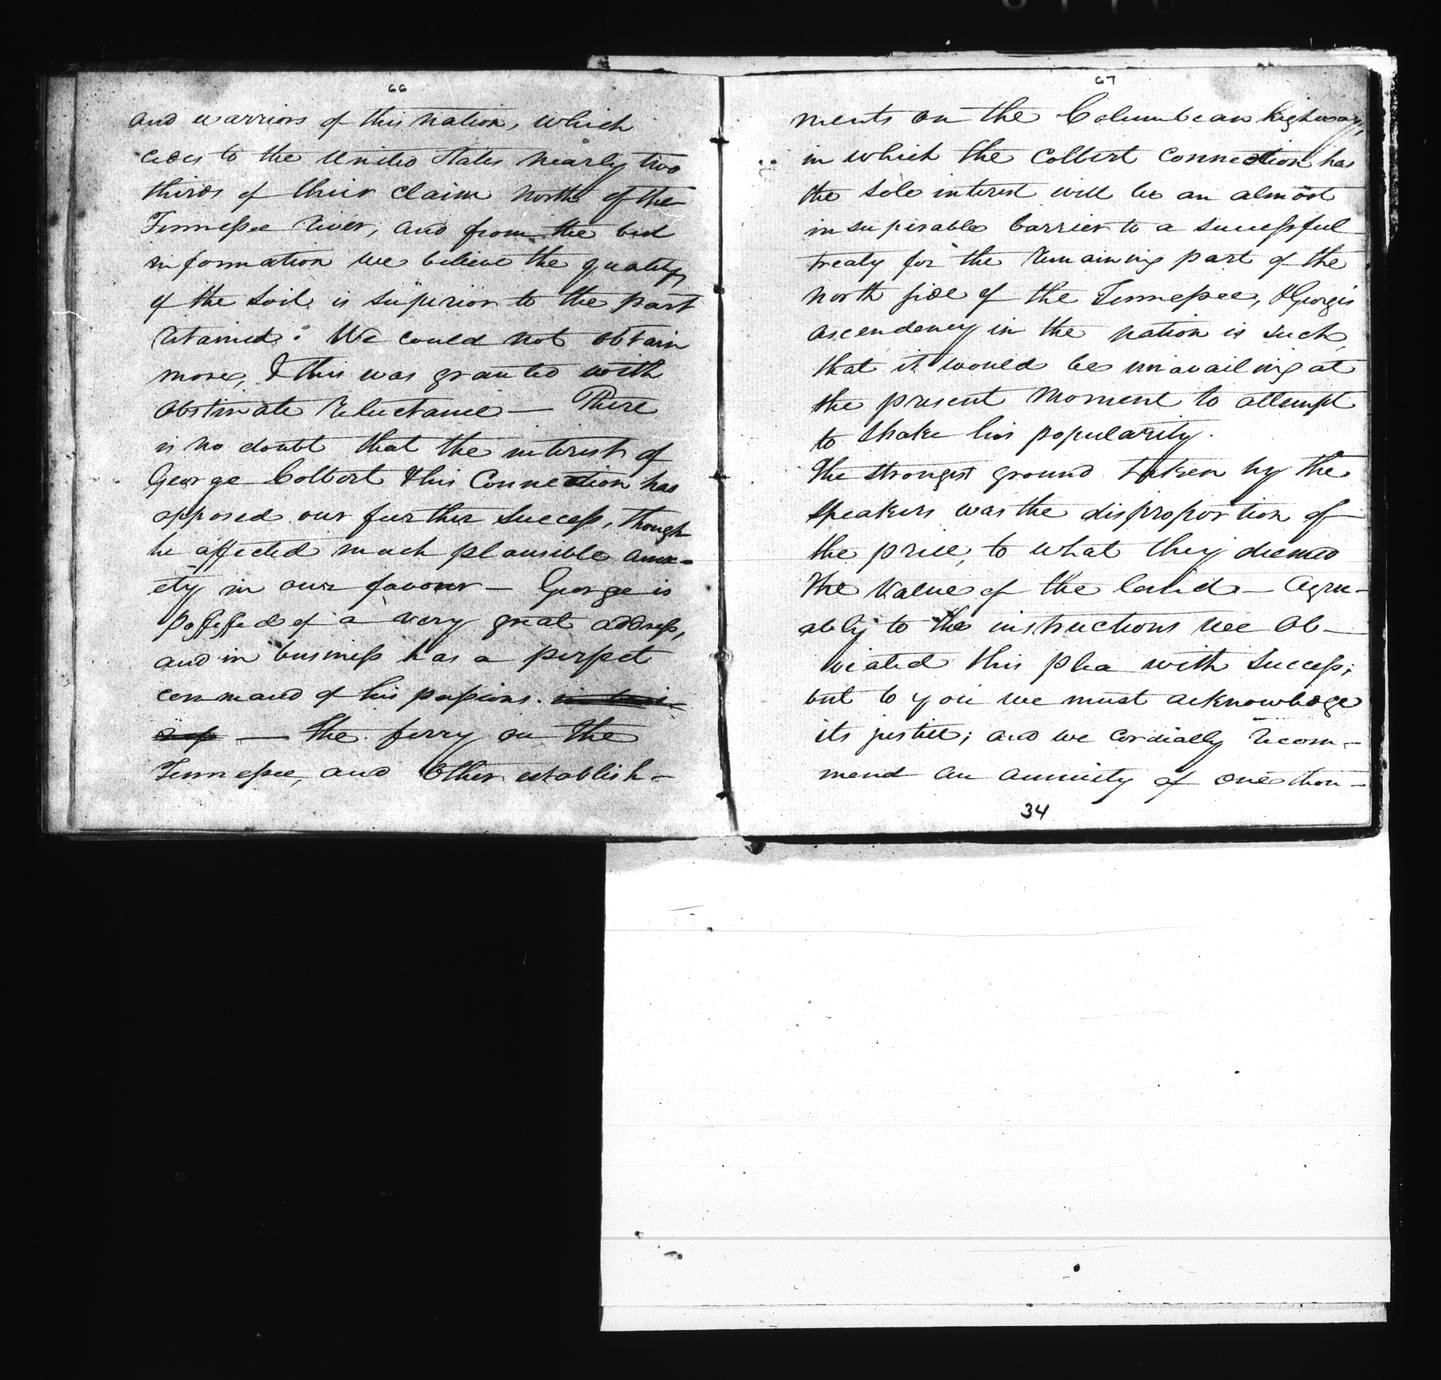 66
and warriors of this nation, which
cedes to the United States nearly two
thirds of their claim north of the
Tennessee River, and from the best
information we believe the quality
of the soil, is superior to the part
retained. We could not obtain
more, & this was granted with
obstinate reluctance — There
is no doubt that the interest of
George Colbert & his Connection has
opposed our further success, though
he affected much plausible anxi-
ety in our favour — George is
possessed of a very great address,
and in business has a perfect
command of his passions.
— the ferry on the
Tennessee, and other establish-
67
ments on the Columbean highway,
in which the Colbert connection has
the sole interest will be an almost
insuperable barrier to a successful
treaty for the remaining part of the
north side of the Tennessee, & George's
ascendency in the nation is such
that it would be unavailing at
the present moment to attempt
to shake his popularity.
The strongest ground taken by the
speakers was the disproportion of
the price, to what they deemed
the value of the land — Agree-
ably to the instructions we ob-
viated this plea with success;
but to you we must acknowledge
its justice; and we cordially recom-
mend an annuity of one thou-
34